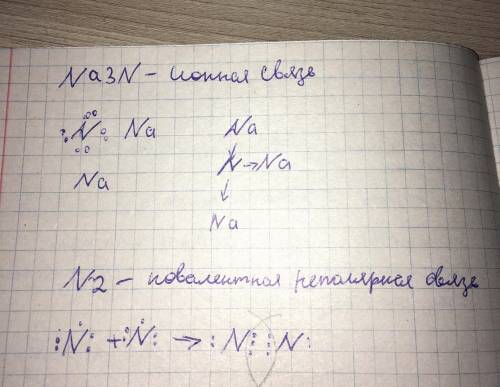 Na3N – ионная связь
:N: Na Na
N→Na
Na Na
N2 – ковалентная неполярная связь
:N: + :N: → :N::N: